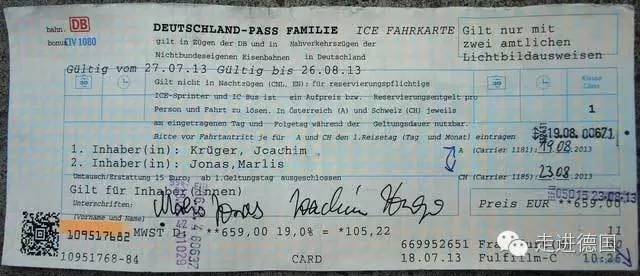 bahn. DB DEUTSCHLAND-PASS FAMILIE ICE FAHRKARTE
bonus CIV 1080
gilt in Zügen der DB und in Nahverkehrszügen der
Nichtbundeseigenen Eisenbahnen in Deutschland
Gilt nur mit
zwei amtlichen
Lichtbildausweisen
Gültig vom 27.07.13 Gültig bis 26.08.13
Gilt nicht in Nachtzügen (CNL, EN); für reservierungspflichtige
ICE-Sprinter und IC Bus ist ein Aufpreis bzw. Reservierungsentgelt pro
Person und Fahrt zu lösen. In Österreich (A) und Schweiz (CH) jeweils
am eingetragenen Tag und Folgetag während der Geltungsdauer nutzbar.
Bitte vor Fahrtantritt je für A und CH den 1.Reisetag (Tag und Monat) eintragen
Klasse
Class
1
19.08. 00671
1. Inhaber(in): Krüger, Joachim
2. Inhaber(in): Jonas,Marlis
A (Carrier 1181): 19.08 2013
CH (Carrier 1185): 23.08 2013
Umtausch/Erstattung 15 Euro; ab 1.Geltungstag ausgeschlossen
Gilt für Inhaber(innen)
Unterschriften:
(Vorname und Name)
Preis EUR **659,00
109517682
MWST D: **659,00 19,0% = *105,22
669952651
11
10951768-84
CARD
18.07.13
Fulfilm-C
10:26
走进德国